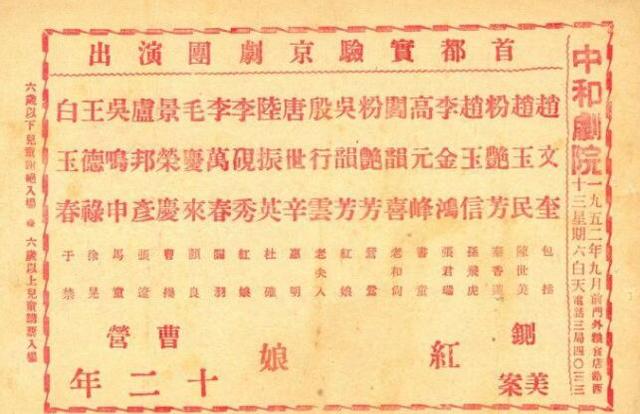 中和劇院
一九五二年九月十三星期六白天
前門外糧食店路西
電話三局四〇三三
首都實驗京劇團演出
趙文奎 包拯
趙玉民 陳世美
粉艷芳 秦香蓮
趙玉信 孫飛虎
李金鴻 張君瑞
高元峰 書童
閻韻喜 老和尚
粉艷芳 鶯鶯
吳韻芳 紅娘
殷行雲 老夫人
唐世辛 惠明
陸振英 杜確
李硯秀 紅娘
李萬春 關羽
毛慶來 顏良
景榮慶 曹操
盧邦彥 張遼
吳鳴申 馬童
王德祿 徐晃
白玉春 于禁
鍘美案
紅娘
曹營
十二年
六歲以下兒童謝絕入場 六歲以上兒童購票入場